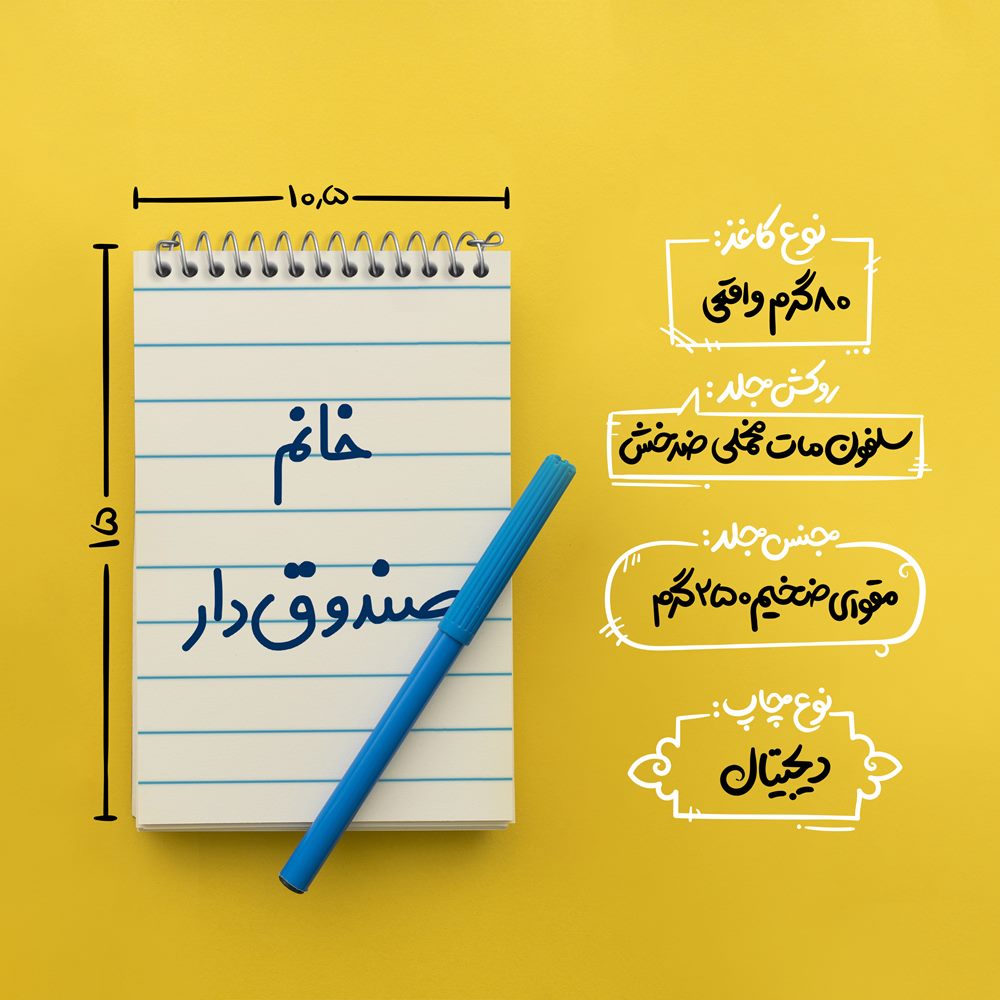 ۱۰٫۵
۱۵
خانم
صندوق‌دار
نوع کاغذ:
۸۰گرم واقعی
روکش جلد:
سلفون مات مخملی ضدخش
جنس جلد:
مقوای ضخیم ۲۵۰گرم
نوع چاپ:
دیجیتال